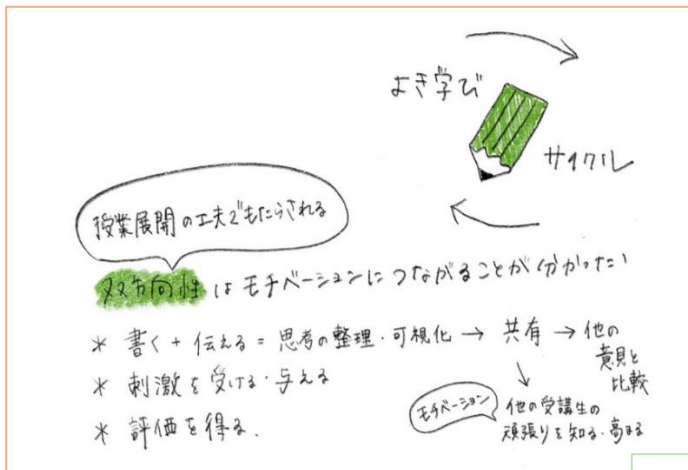 よき学び
サイクル
授業展開の工夫でもたらされる
双方向性はモチベーションにつながることが分かった!
* 書く + 伝える = 思考の整理・可視化 → 共有 → 他の
意見と
比較
* 刺激を受ける・与える
モチベーション
他の受講生の
頑張りを知る・高まる
* 評価を得る.